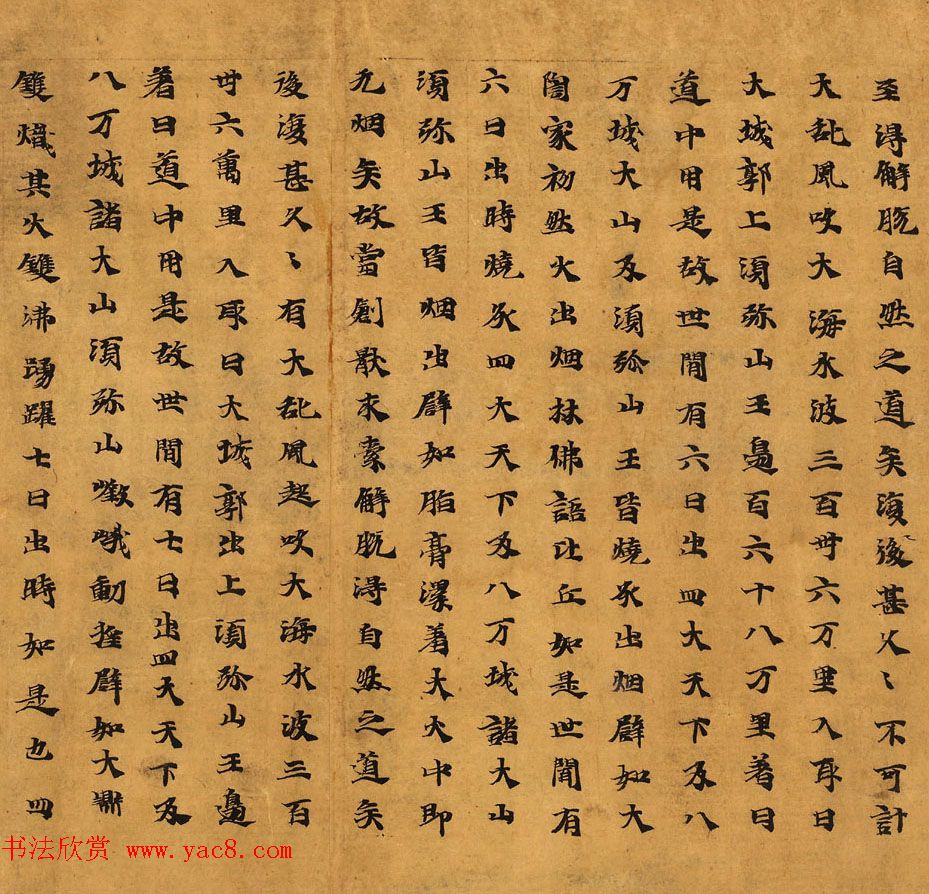 至得解脱自然之道矣復後甚久〻不可計
大乱風吹大海水波三百卅六万里入取日
大城郭上須弥山王邊百六十八万里著日
道中用是故世間有六日出四大天下及八
万城大山及須弥山王皆燒炙出烟譬如大
陶家初然火出烟㹞佛語比丘如是世間有
六日出時燒炙四大天下及八万城諸大山
須弥山王皆烟出譬如脂膏深著大火中即
九烟矣故當創猒求索解脱得自然之道矣
後復甚久〻有大乱風起吹大海水波三百
卅六萬里入取日大城郭出上須弥山王邊
著日道中用是故世間有七日出四大天下及
八万城諸大山須弥山嶔峨動揺譬如大鼎
鑊熾其火鑊沸踴躍七日出時如是也四
书法欣赏 www.yac8.com